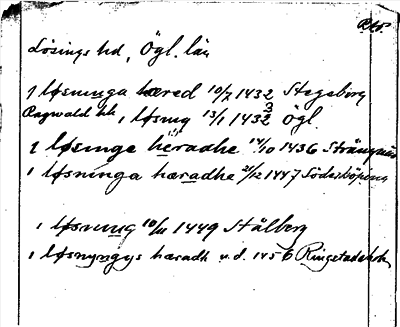 P.t.o.
Lösings hd, Ögl. län
i løsninga hæred 10/7 1432 Stegeborg
Ragwald hh, i løsing 13/1 1433 Ögl
i løsinge heradhe 14/10 1436 Strängnäs
i løsninga hæradhe 21/12 1447 Söderköping
i løsning 10/11 1449 Stålberg
i løsnyngys hæradh u.d. 1456 Ringstadaholm